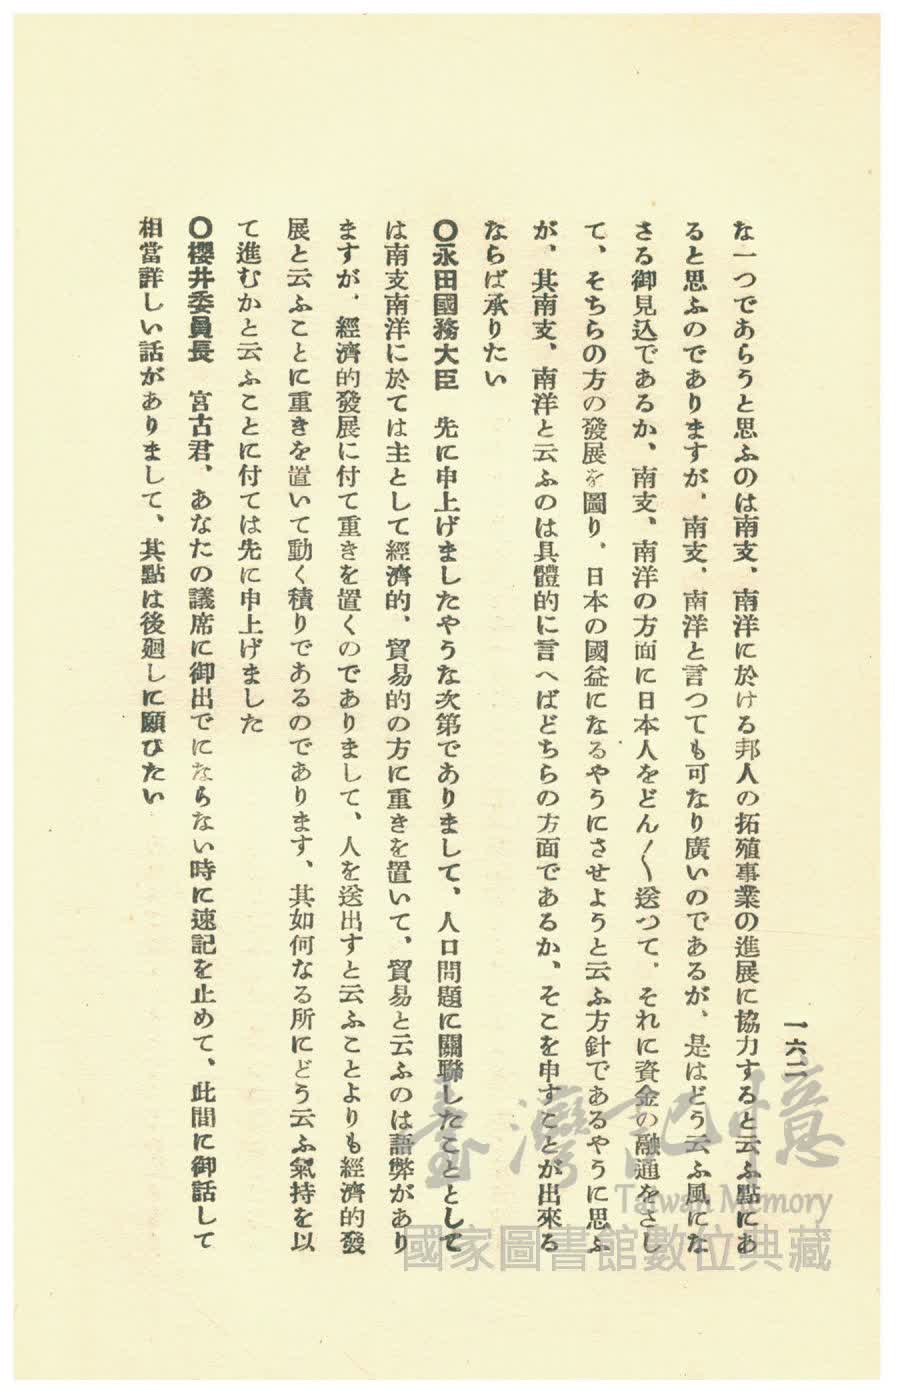 一六二
な一つであらうと思ふのは南支、南洋に於ける邦人の拓殖事業の進展に協力すると云ふ點にあ
ると思ふのでありますが、南支、南洋と言つても可なり廣いのであるが、是はどう云ふ風にな
さる御見込であるか、南支、南洋の方面に日本人をどん〱送つて、それに資金の融通をさし
て、そちらの方の發展を圖り、日本の國益になるやうにさせようと云ふ方針であるやうに思ふ
が、其南支、南洋と云ふのは具體的に言へばどちらの方面であるか、そこを申すことが出來る
ならば承りたい
〇永田國務大臣　先に申上げましたやうな次第でありまして、人口問題に關聯したこととして
は南支南洋に於ては主として經濟的、貿易的の方に重きを置いて、貿易と云ふのは語弊があり
ますが、經濟的發展に付て重きを置くのでありまして、人を送出すと云ふことよりも經濟的發
展と云ふことに重きを置いて動く積りであるのであります、其如何なる所にどう云ふ氣持を以
て進むかと云ふことに付ては先に申上げました
〇櫻井委員長　宮古君、あなたの議席に御出でにならない時に速記を止めて、此間に御話して
相當詳しい話がありまして、其點は後廻しに願ひたい
臺灣記憶
Taiwan Memory
國家圖書館數位典藏